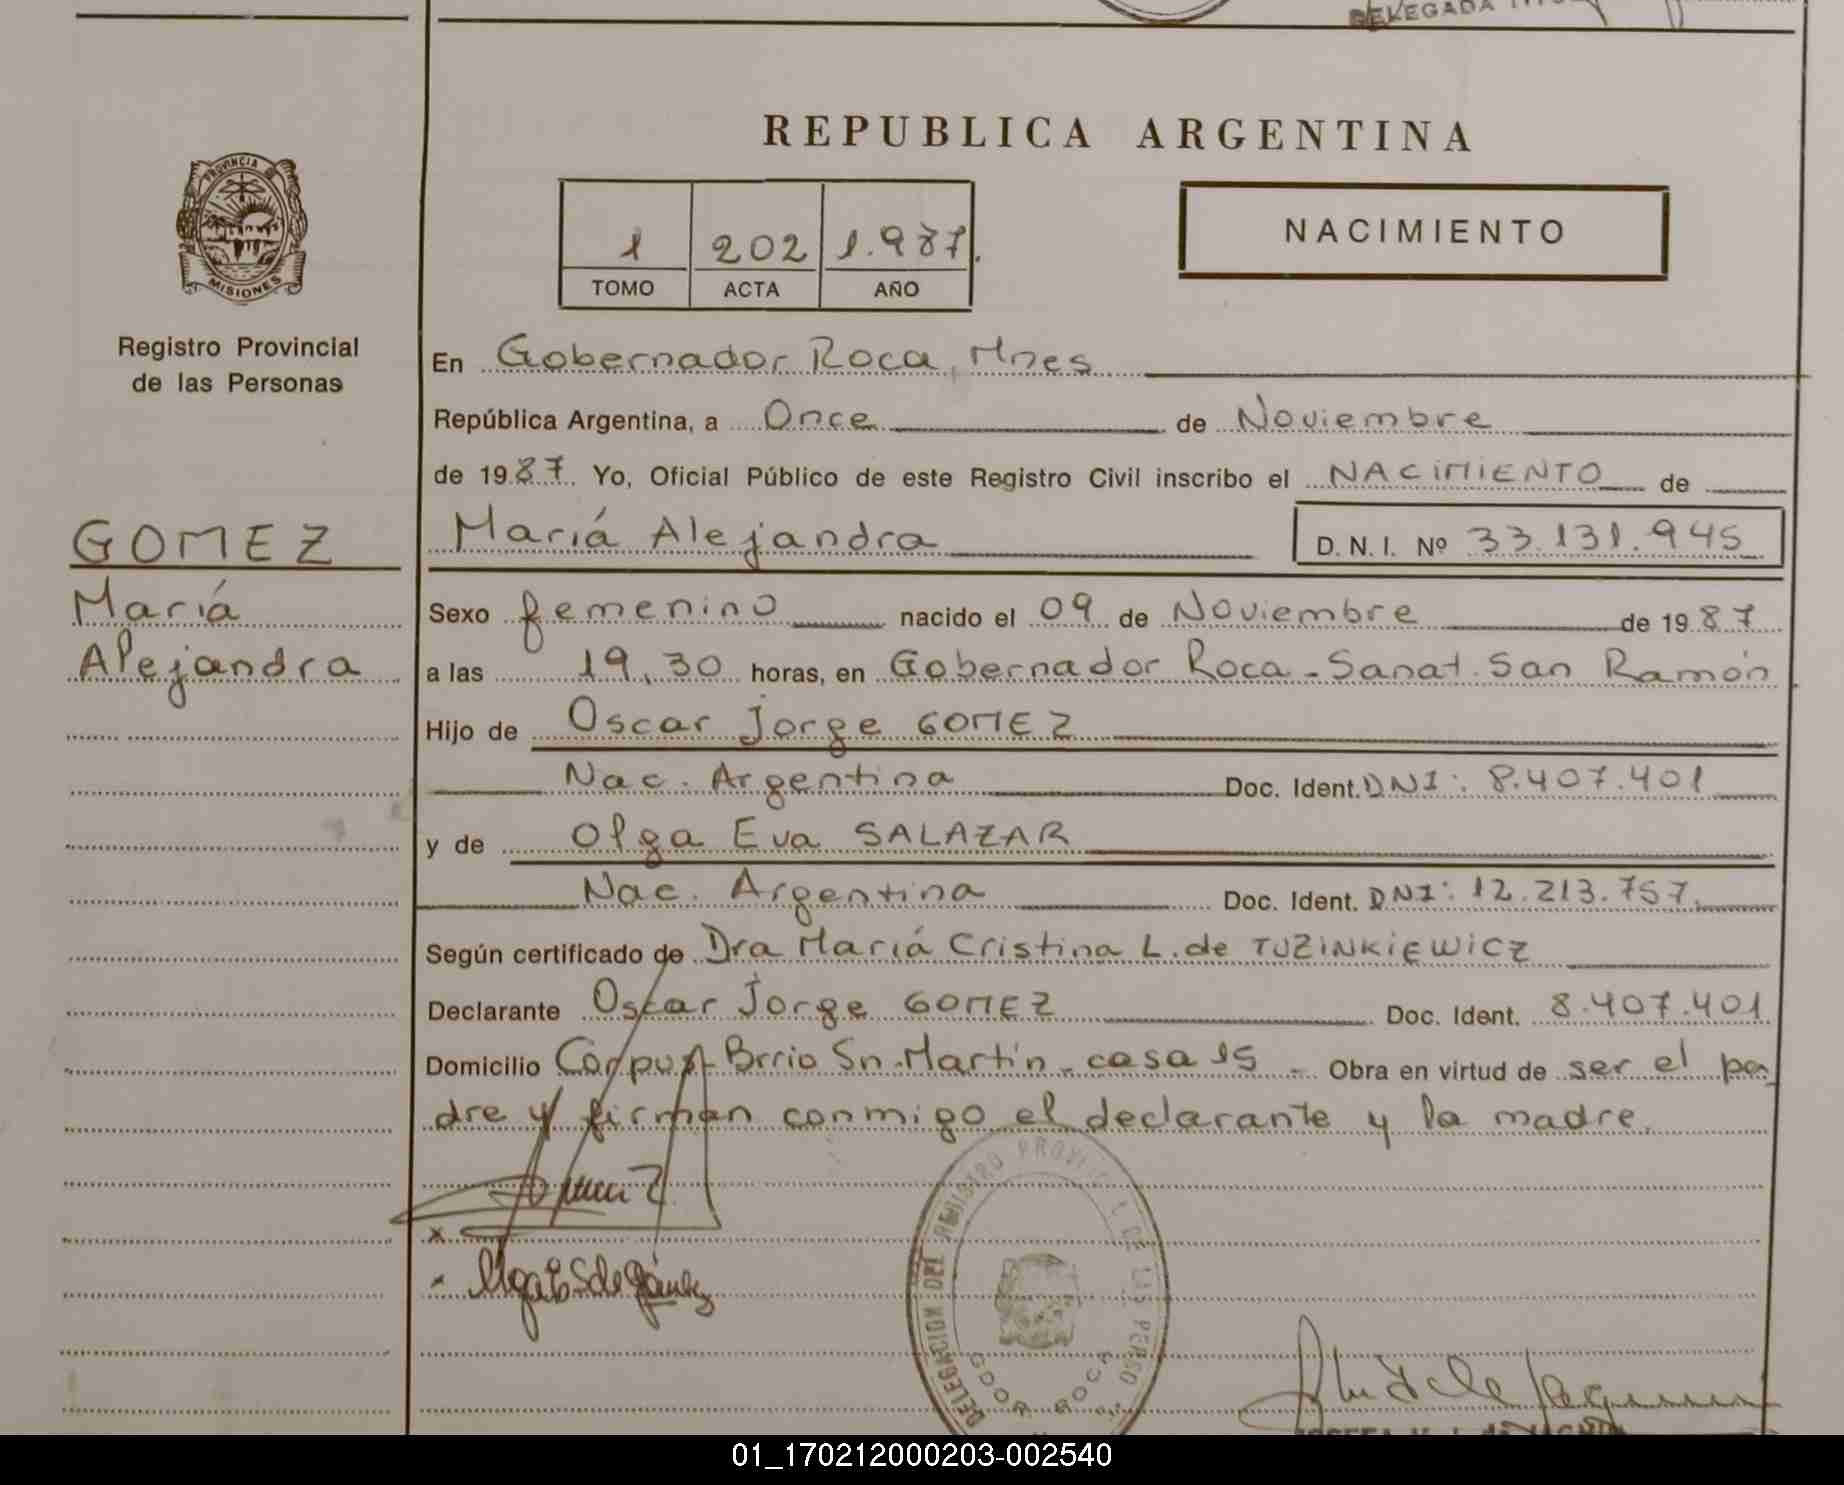 DELEGADA
REPUBLICA ARGENTINA
PROVINCIA DE
MISIONES
1 202 1.987.
TOMO ACTA AÑO
NACIMIENTO
Registro Provincial
de las Personas
En Gobernador Roca, Mnes
República Argentina, a Once de Noviembre
de 1987. Yo, Oficial Público de este Registro Civil inscribo el NACIMIENTO de
GOMEZ
María
Alejandra
María Alejandra D. N. I. Nº 33.131.945
Sexo femenino nacido el 09 de Noviembre de 1987
a las 19,30 horas, en Gobernador Roca - Sanat. San Ramón
Hijo de Oscar Jorge GOMEZ
Nac. Argentina Doc. Ident. DNI: 8.407.401
y de Olga Eva SALAZAR
Nac. Argentina Doc. Ident. DNI: 12.213.757.
Según certificado de Dra María Cristina L. de TUZINKIEWICZ
Declarante Oscar Jorge GOMEZ Doc. Ident. 8.407.401
Domicilio Corpus - Brrio Sn. Martín - casa 15 - Obra en virtud de ser el pa
dre y firman conmigo el declarante y la madre.
x
x Olga E S de Gómez
DELEGACION DEL REGISTRO PROVINCIAL DE LAS PERSO
GDOR ROCA
01_170212000203-002540